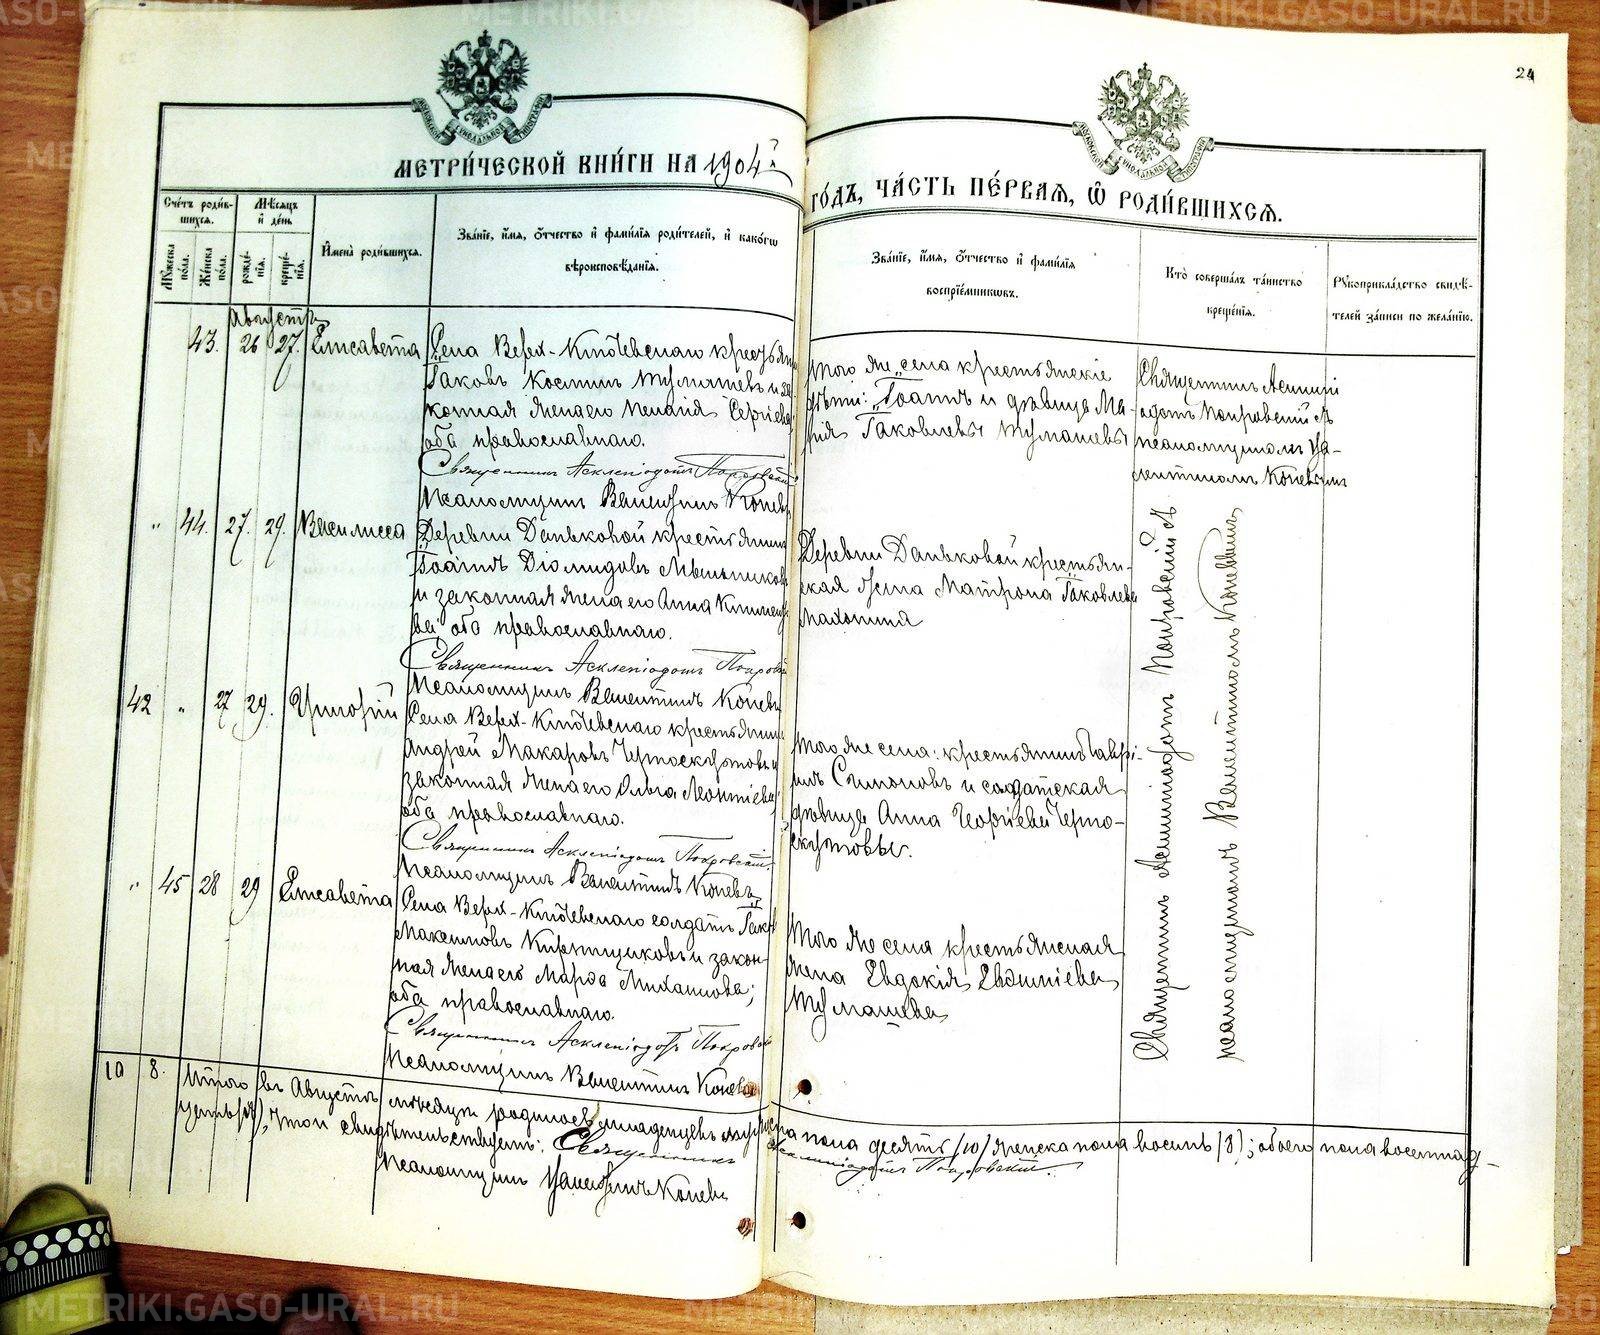 METRIKI.GASO-URAL.RU
24
МЕТРИ́ЧЕСКОЙ КНИ́ГИ НА 1904й
ГО́ДЪ, ЧА́СТЬ ПЕ́РВАЯ, Ѡ РОДИ́ВШИХСЯ.
Сче́тъ роди́в-
шихся.
Мѣ́сяцъ
и де́нь
Му́жеска
по́ла.
Же́нска
по́ла.
рожде́-
нїя.
креще́-
нїя.
Имена̀ роди́вшихся.
Зва́нїе, и́мя, о́тчество и фами́лїя роди́телей, и како́гѡ
вѣроисповѣ́данїя.
Зва́нїе, и́мя, о́тчество и фами́лїя
воспрїе́мниковъ.
Кто̀ соверша́лъ та́инство
креще́нїя.
Рꙋкоприкла́дство свидѣ́-
телей за́писи по жела́нїю.
Августъ
43. 26 27. Елисавета
Села Верх-Ключевскаго крестьян
Іаковъ Косминъ Тумашевъ и за
конная жена его Пелагія Сергіева
оба православнаго.
Священникъ Асклепіодотъ Покровскій
Псаломщикъ Валентинъ Коневъ
Того же села крестьянскіе
дѣти: Іоаннъ и дѣвица Ма-
рія Іаковлевы Тумашевы
Священникъ Асклепі
одотъ Покровскій съ
псаломщикомъ Ва-
лентиномъ Коневымъ
" 44. 27. 29. Василисса
Деревни Даньковой крестьянинъ
Іоаннъ Діомидовъ Мыльников
и законная жена его Анна Климен
ва оба православнаго.
Священникъ Асклепіодотъ Покров
Псаломщикъ Валентинъ Коневъ
Деревни Даньковой крестьян-
ская жена Матрона Іаковлева
Махонина
42 " 27 29. Григорій
Села Верх-Ключевскаго крестьянин
Андрей Макаровъ Черноскутовъ и
законная жена его Ольга Леонтіева
оба православнаго.
Священникъ Асклепіодотъ Покровскій
Псаломщикъ Валентинъ Коневъ
Того же села: крестьянинъ Гаврі-
илъ Симоновъ и солдатская
дѣвица Анна Георгіева Черно-
скутовы.
" 45 28 29 Елисавета
Села Верх-Ключевскаго солдатъ Іак
Максимовъ и закон-
ная жена его Марѳа Михаилова;
оба православнаго.
Священникъ Асклепіодотъ Покровск
Псаломщикъ Валентинъ Коневъ
Того же села крестьянская
жена Евдокія
Тумашева
Священникъ Асклепіодотъ Покровскій съ
псаломщикомъ Валентиномъ Коневымъ
10 8. Итого въ Августѣ мѣсяцѣ родилось младенцевъ мужеска пола десять /10/ женска пола восемь /8/; обоего пола восемнад-
цать (18), Что и свидѣтельствуемъ: Священникъ Асклепіодотъ Покровскій.
Псаломщикъ Валентинъ Коневъ
METRIKI.GASO-URAL.RU